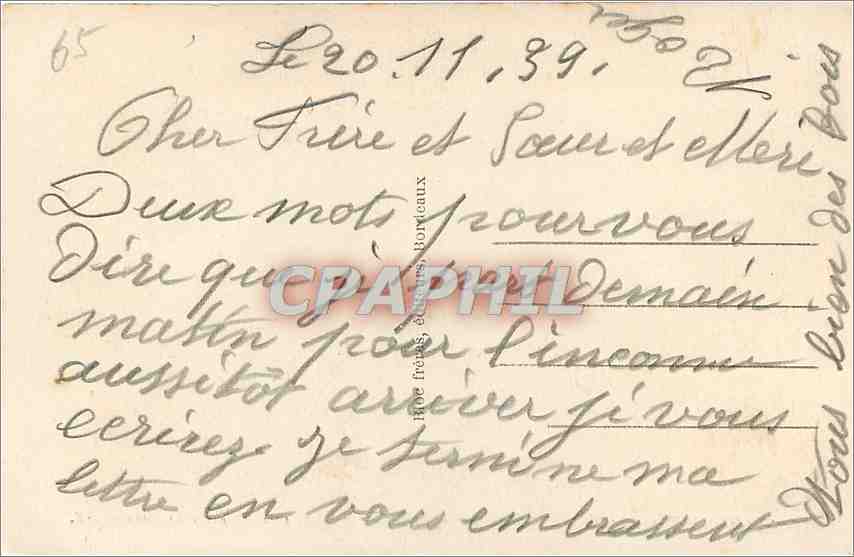 65
Le 20.11.39.
Cher Frère et Sœur et Mère
Deux mots pour vous
Dire que je part Demain
matin pour l'inconnu
aussitôt arriver je vous
ecrirez Je termine ma
lettre en vous embrassent
tous bien des fois
Roger
Bloc frères, éditeurs, Bordeaux
CPAPHIL